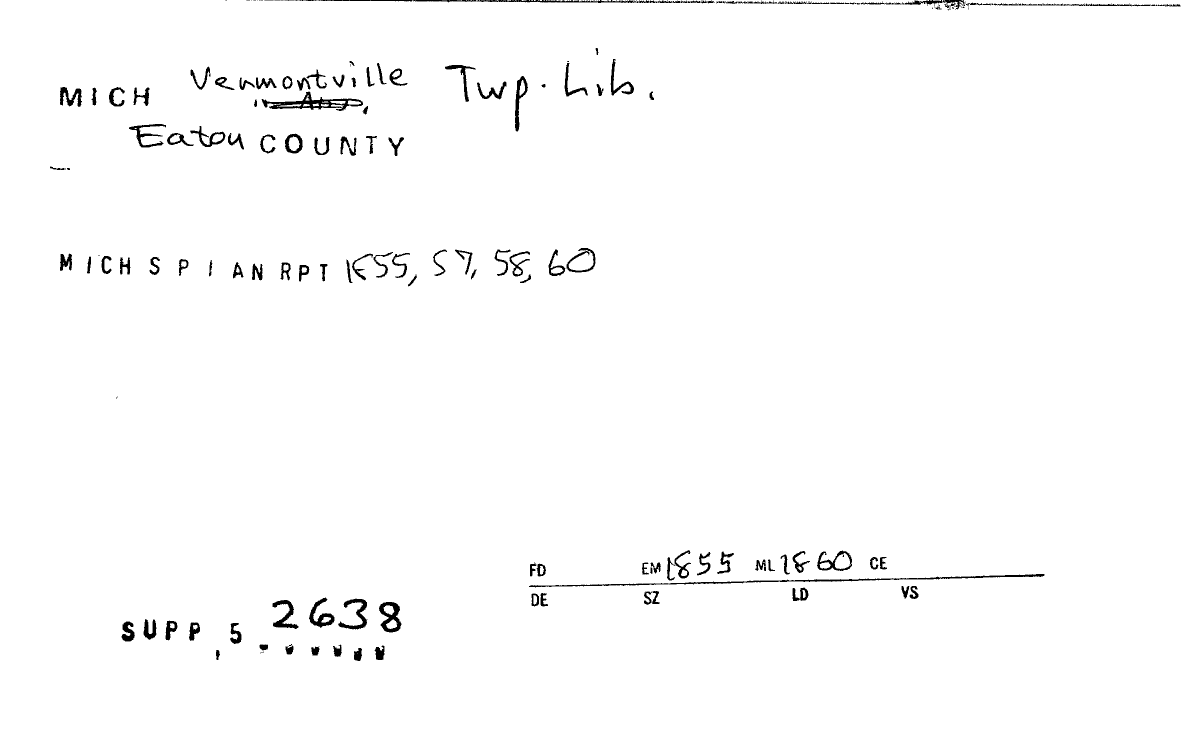 MICH Vermontville Twp. Lib.
Eaton COUNTY
MICH S P I AN RPT 1855, 57, 58, 60
FD EM 1855 ML 1860 CE
DE SZ LD VS
SUPP, 5 2638